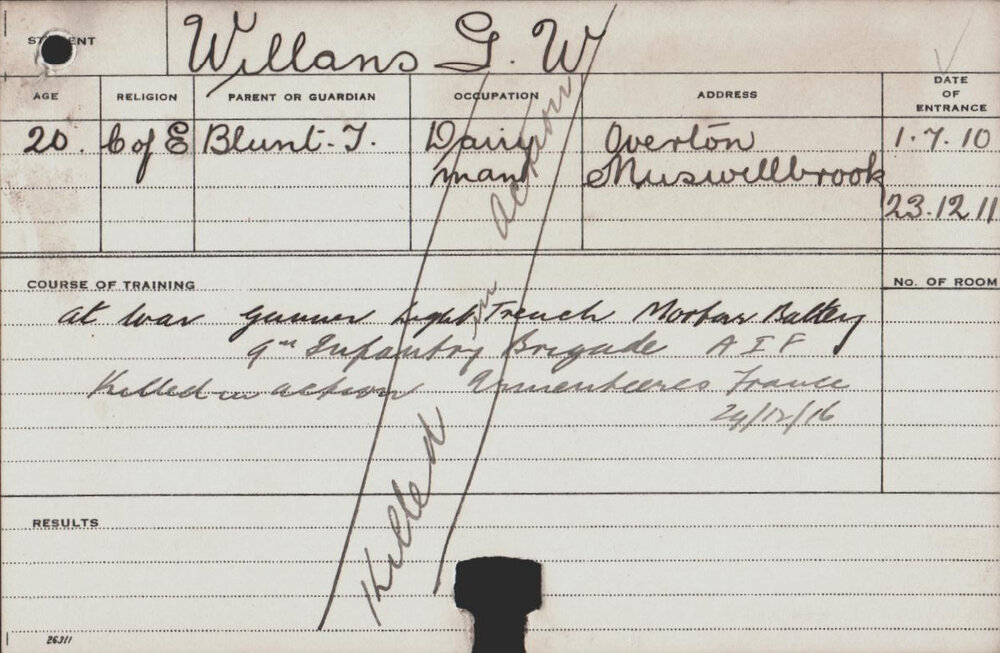 STUDENT Willans G. W
AGE RELIGION PARENT OR GUARDIAN OCCUPATION ADDRESS DATE OF ENTRANCE
20. C of E Blunt. T. Dairy Overton 1.7.10
man Muswellbrook
23.12.11
COURSE OF TRAINING No. OF ROOM
at War Gunner Light Trench Mortar Battery
9th Infantry Brigade A I F
Killed in action Armentieres France
24/12/16
Killed in action
RESULTS
26311